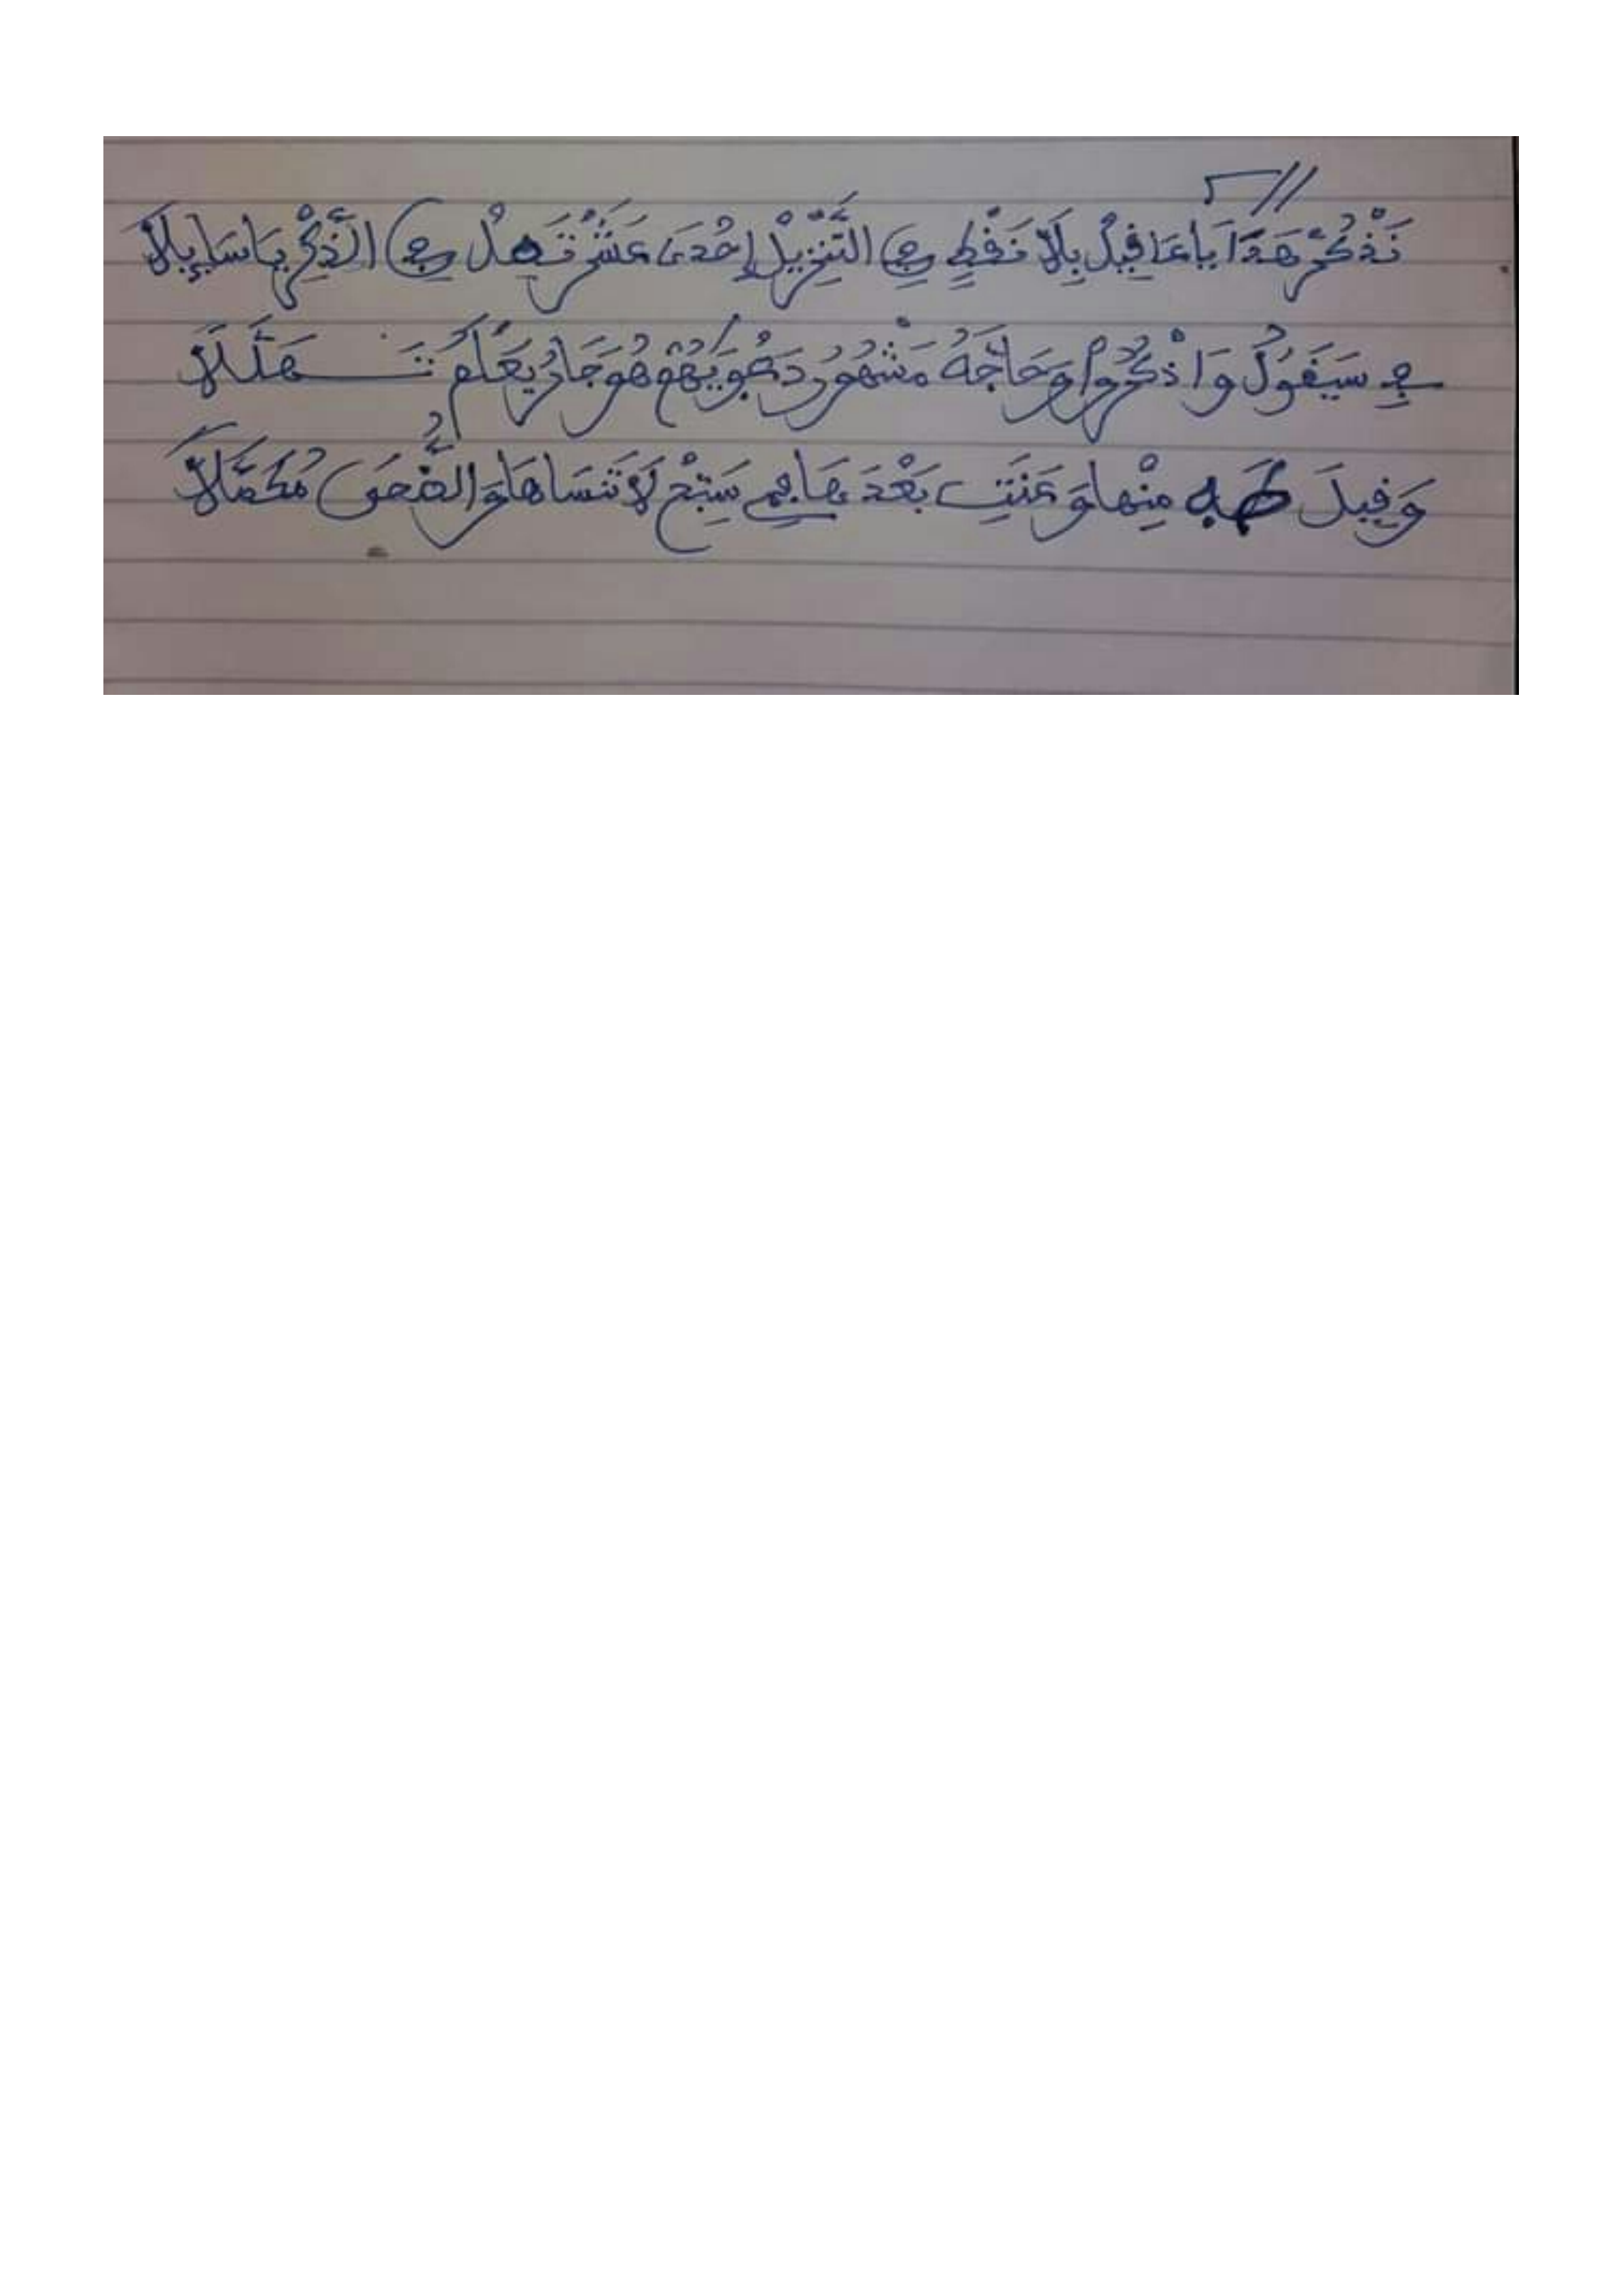 نَذْكُرْ هَذَا يَا عَاقِلْ بِلَا نَقْطٍ فِي التَّنْزِيلْ إِحْدَى عَشَرْ تَهْلْ فِي الذِّكْرِ يَا سَائِلَا
فِي سَيَقُولُ وَاذْكُرُوا وَحَاجَّهُ مَشْهُورُ هُوَ جَارُ يَعْلَمُ تَهَلَّلَا
وَقِيلَ طَهَ مِنْهَا وَعَنَتِ بَعْدَهَا فِي سَبِّحْ لَا تَنْسَاهَا وَالضُّحَى مُكَمَّلَا